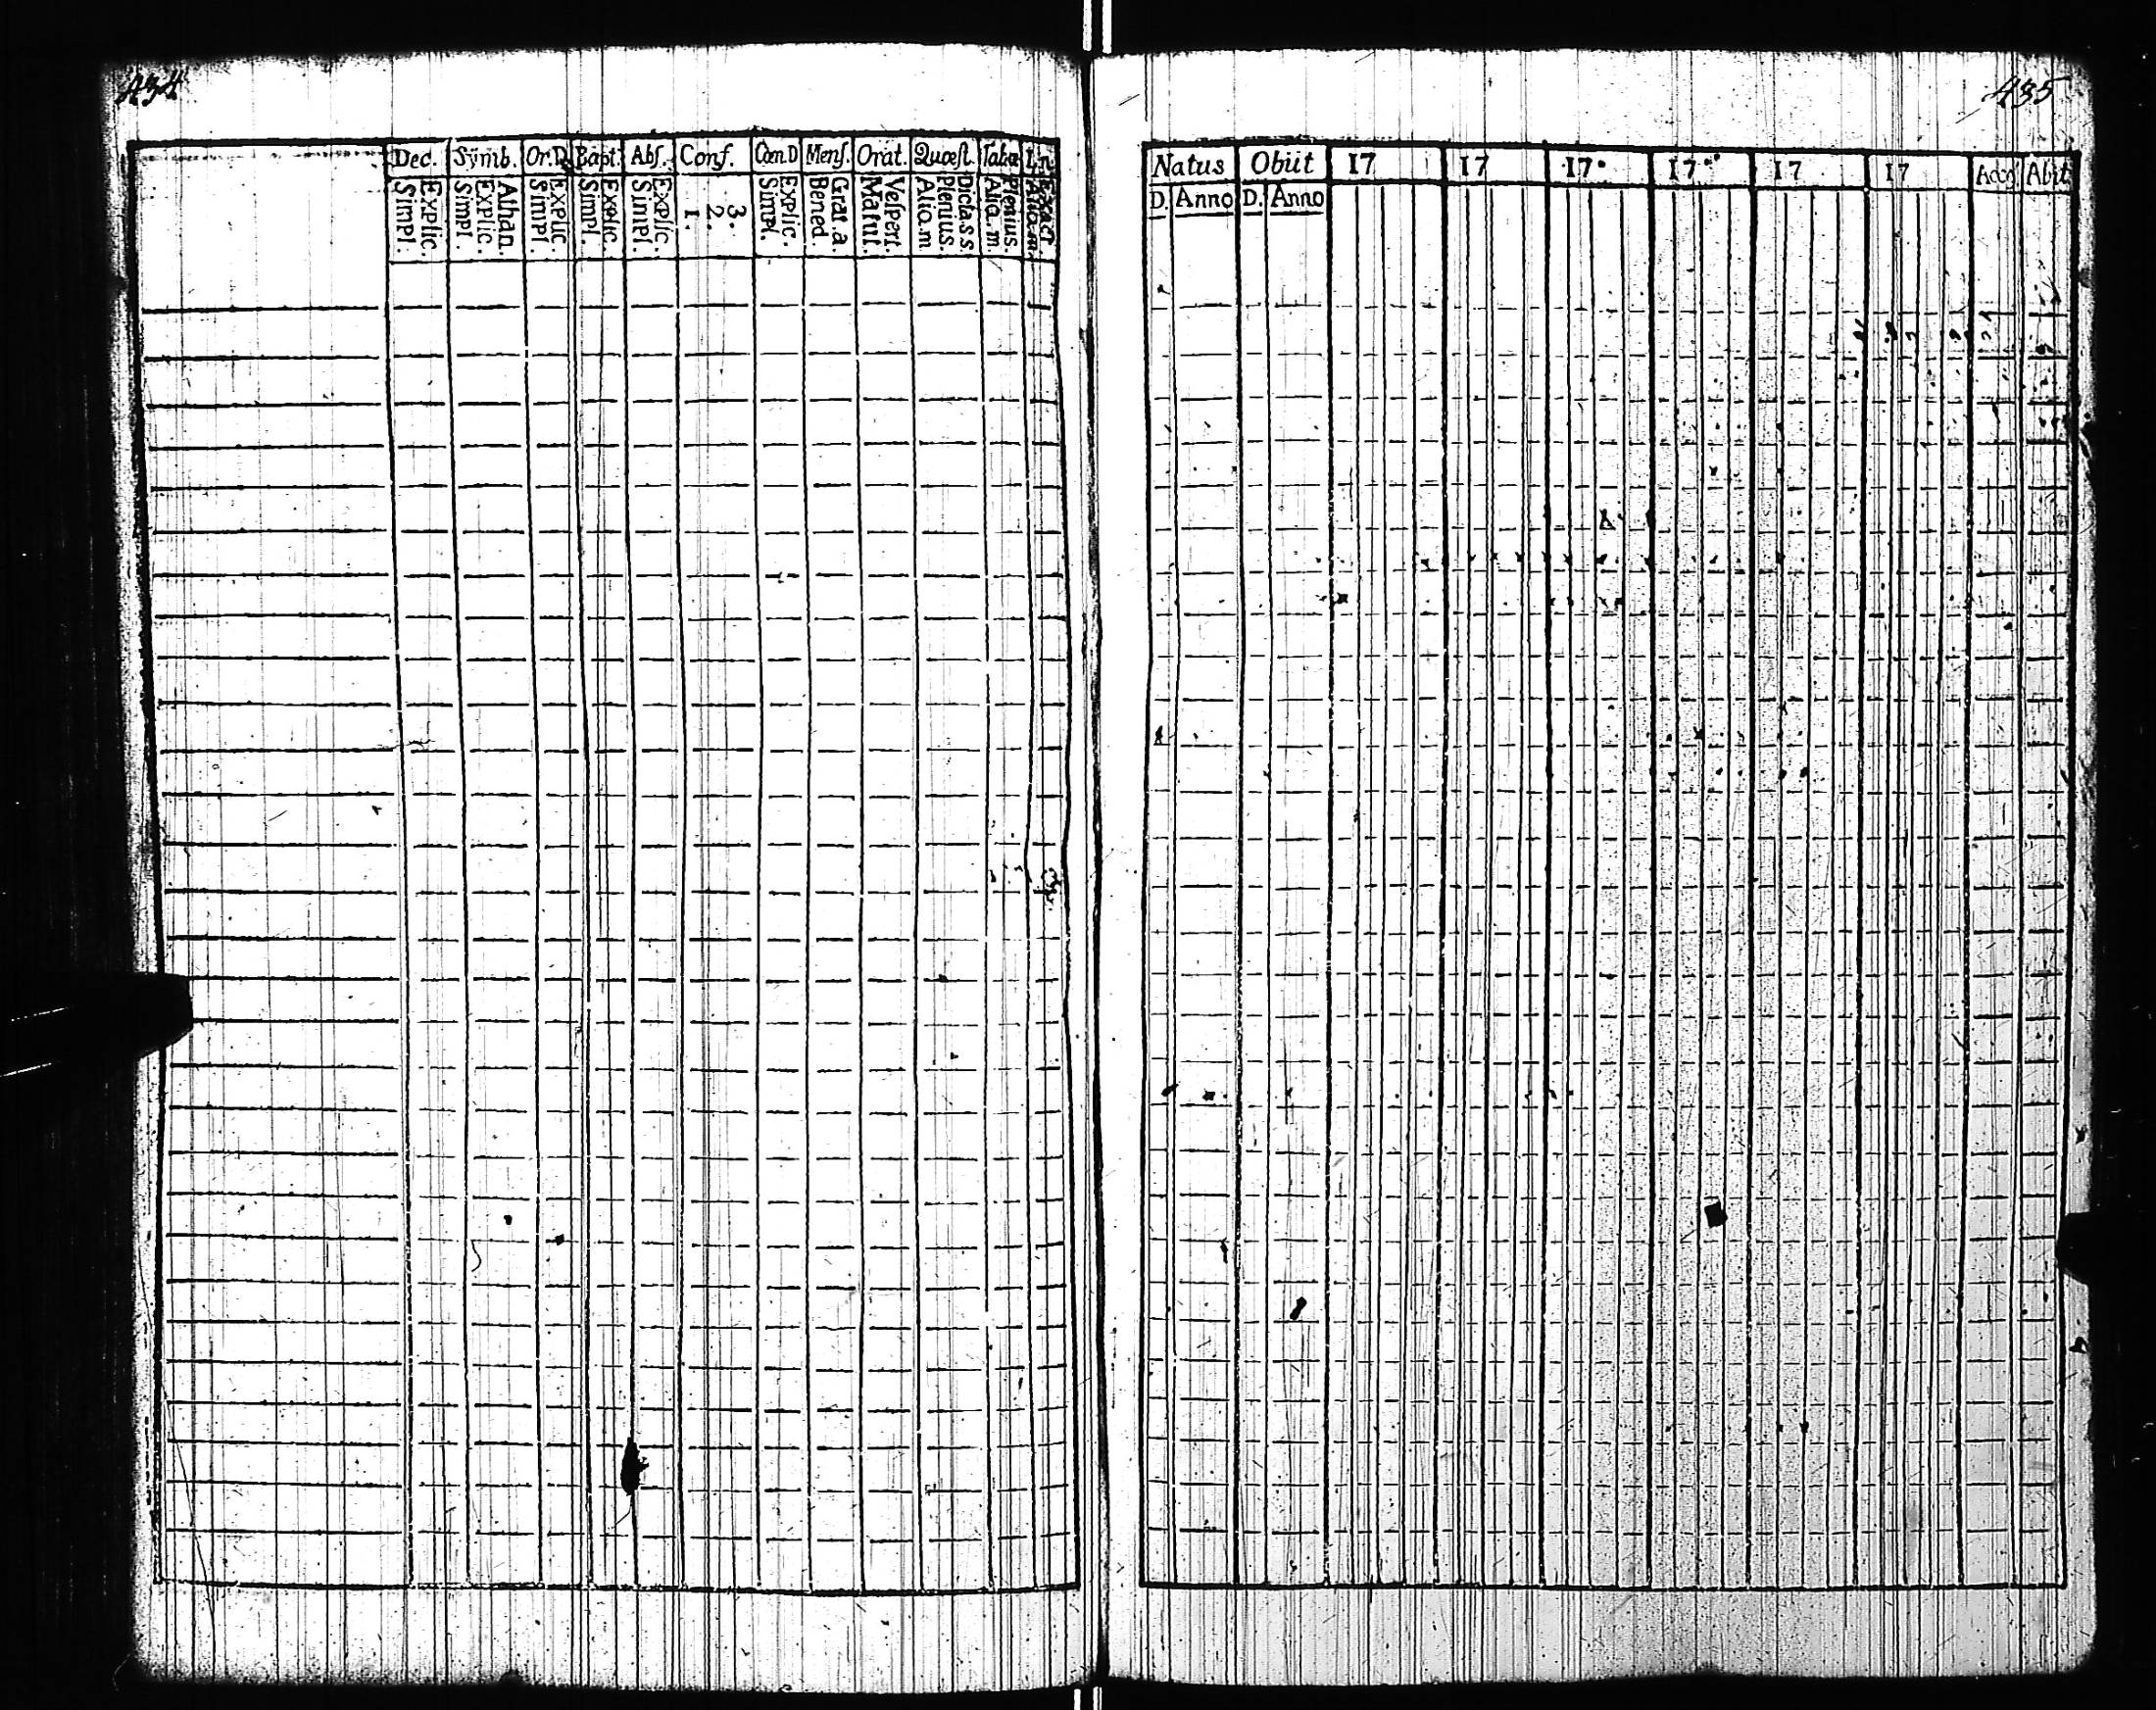 434
Dec. Symb. Or.D Bapt. Abs. Conf. Com D Mens. Orat. Quæst. Taba Lin
Simpl. Explic. Simpl. Explic. Athan. Simpl. Explic. Simpl. Explic. Simpl. Explic. 1. 2. 3. Simpl. Explic. Bened. Grat. a. Matut. Vespert. Alio. m. Plenius. Dicta. s s. Alio. m. Plenius. Exact
435
Natus Obiit 17 17 17 17 17 17 Acces Abiit
D. Anno D. Anno